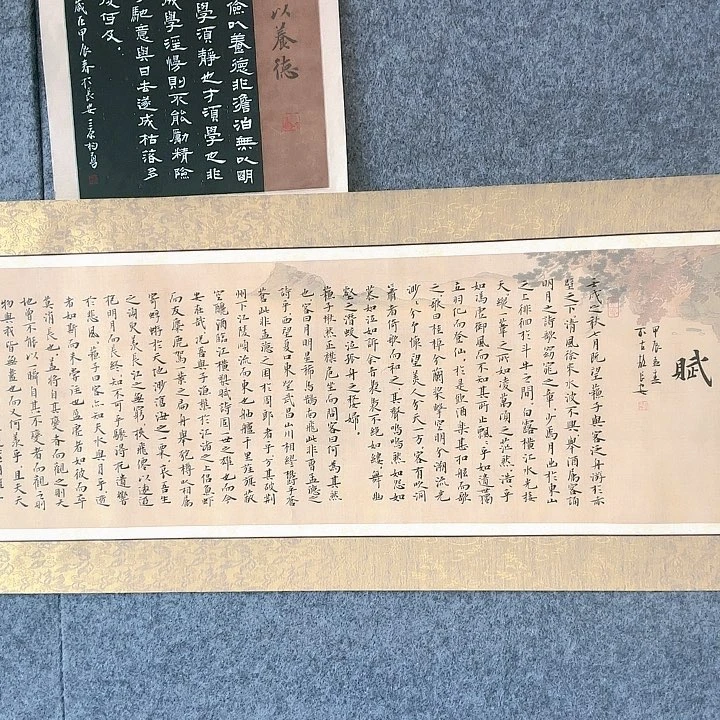 以養德
儉以養德非澹泊無以明
學須靜也才須學也非
成學淫慢則不能勵精險
馳意與日去遂成枯落多
復何及
歲在甲辰春於長安三原
賦
甲辰孟
壬戌之秋七月既望蘇子與客泛舟游於赤
壁之下清風徐来水波不興舉酒属客誦
明月之詩歌窈窕之章少焉月出於東山
之上徘徊於斗牛之間白露横江水光接
天縱一葦之所如凌萬頃之茫然浩乎
如馮虚御風而不知其所止飄乎如遺世獨
立羽化而登仙於是飲酒樂甚扣舷而歌
之歌曰桂棹兮蘭槳擊空明兮溯流光
渺兮予懷望美人兮天一方客有吹洞
簫者倚歌而和之其聲嗚嗚然如怨如
慕如泣如訴餘音裊裊不絕如縷舞幽
壑之潛蛟泣孤舟之嫠婦
蘇子愀然正襟危坐而問客曰何為其然
也客曰月明星稀烏鵲南飛此非曹孟德之
詩乎西望夏口東望武昌山川相繆鬱乎蒼
蒼此非孟德之困於周郎者乎方其破荆
州下江陵順流而東也舳艫千里旌旗蔽
空釃酒臨江横槊賦詩固一世之雄也而今
安在哉况吾與子漁樵於江渚之上侣魚蝦
而友麋鹿駕一葉之扁舟舉匏樽以相属
寄蜉蝣於天地渺滄海之一粟哀吾生
之須臾羨長江之無窮挾飛僊以遨遊
抱明月而長終知不可乎驟得托遺響
於悲風蘇子曰客亦知夫水與月乎逝
者如斯而未嘗往也盈虚者如彼而卒
莫消長也蓋將自其變者而觀之則天
地曾不能以一瞬自其不變者而觀之則
物與我皆無盡也而又何羡乎且夫天